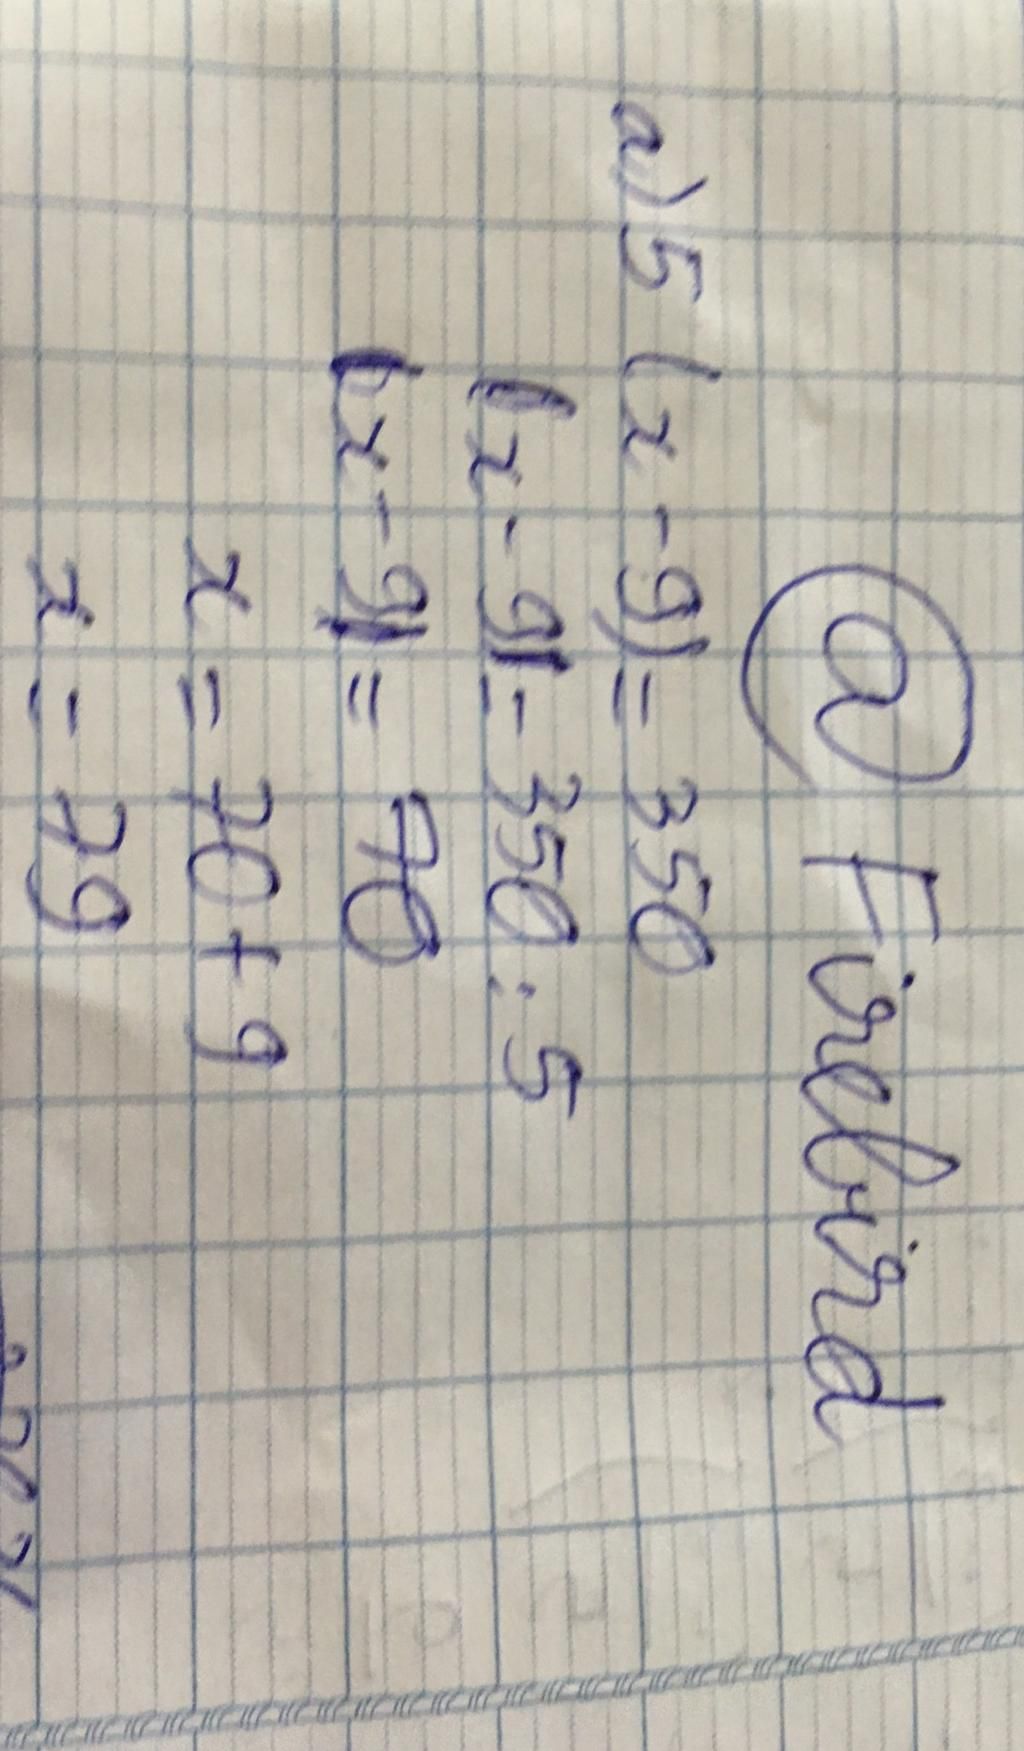 @ Firebird
а) 5 (x - 9) = 350
x - 9 = 350 : 5
x - 9 = 70
x = 70 + 9
x = 79